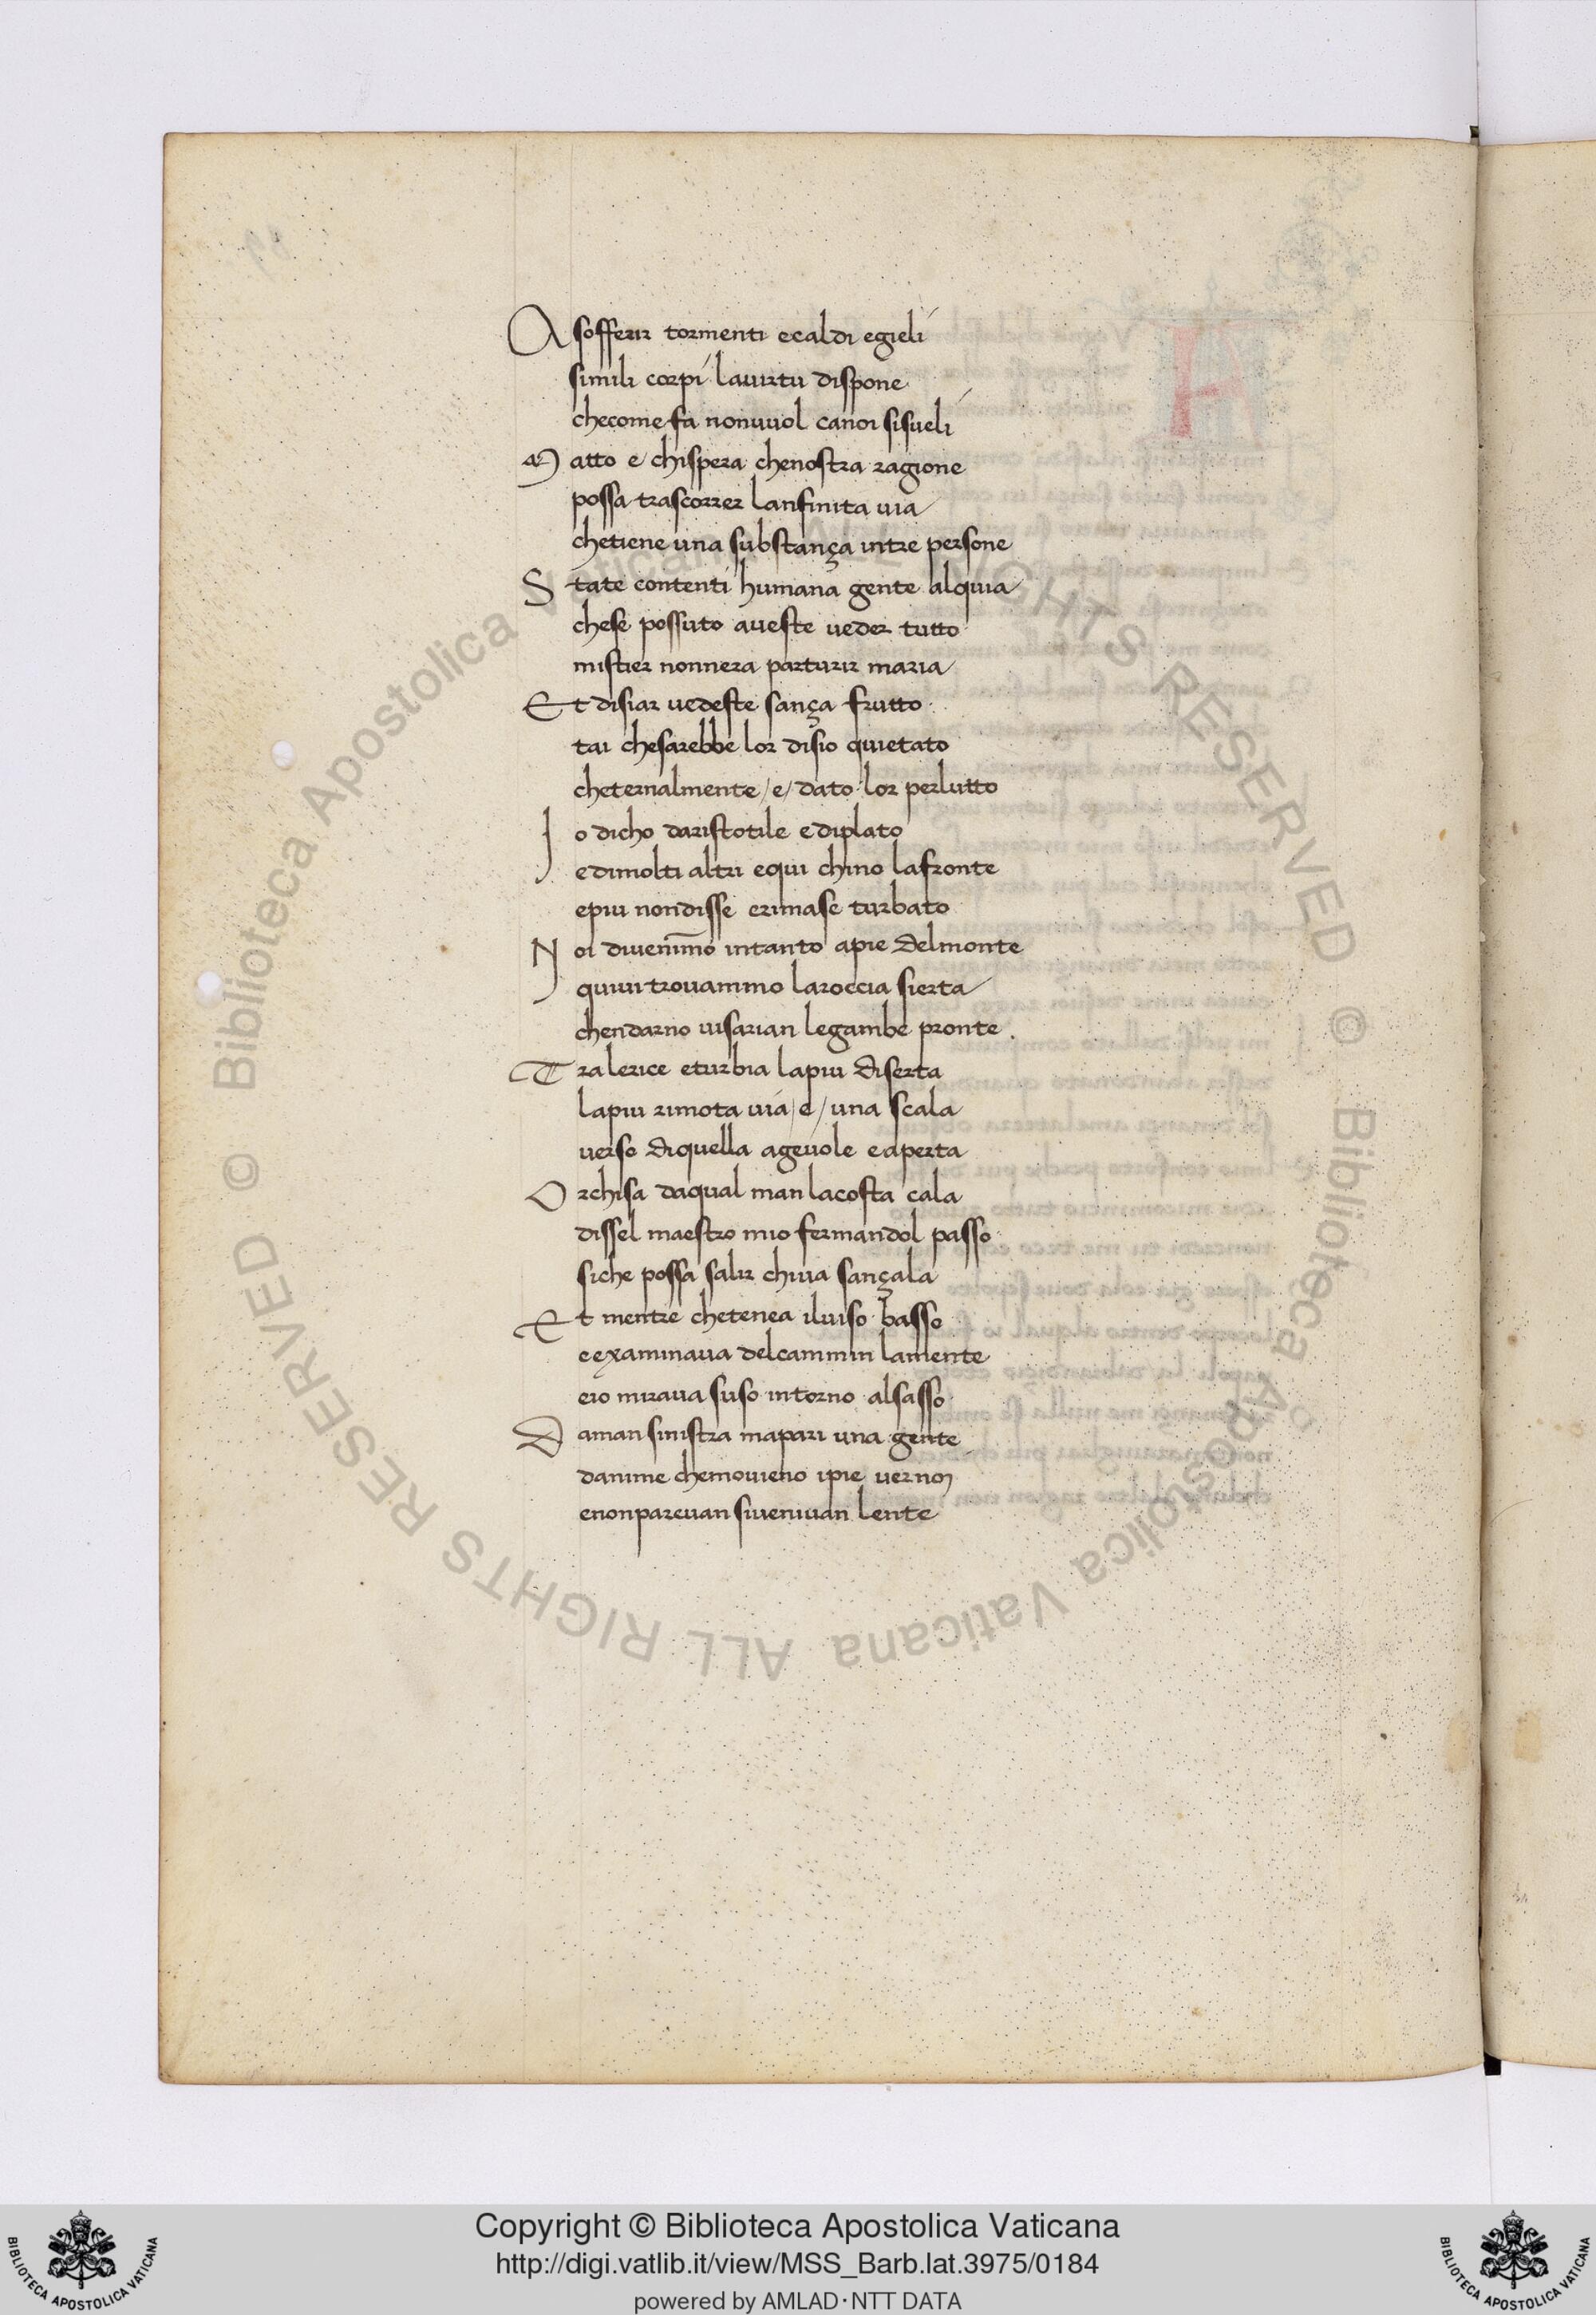 A sofferir tormenti ecaldi egieli
simili corpi lauirtu dispone
checome fa nonuuol canoi sisueli
M atto e chispera chenostra ragione
possa trascorrer lanfinita uia
chetiene una substança intre persone
S tate contenti humana gente alquia
chese possuto aueste ueder tutto
mistier nonnera parturir maria
E t disiar uedeste sança frutto
tai chesarebbe lor disio quietato
cheternalmente /e/ dato lor perlutto
I o dicho daristotile ediplato
edimolti altri equi chino lafronte
epiu nondisse erimase turbato
N oi diuenim̅o intanto apie delmonte
quiui trouammo laroccia sierta
chendarno uisarian legambe pronte
T ralerice eturbia lapiu diserta
lapiu rimota uia /e/ una scala
uerso diquella ageuole eaperta
O rchisa daqual man lacosta cala
dissel maestro mio fermandol passo
siche possa salir chiua sançala
E t mentre chetenea iluiso basso
eexaminaua delcammin lamente
eio miraua suso intorno alsasso
D aman sinistra mapari una gente
danime chemouieno ipie uernoi
enonpareuan siueniuan lente
Copyright © Biblioteca Apostolica Vaticana
http://digi.vatlib.it/view/MSS_Barb.lat.3975/0184
powered by AMLAD·NTT DATA